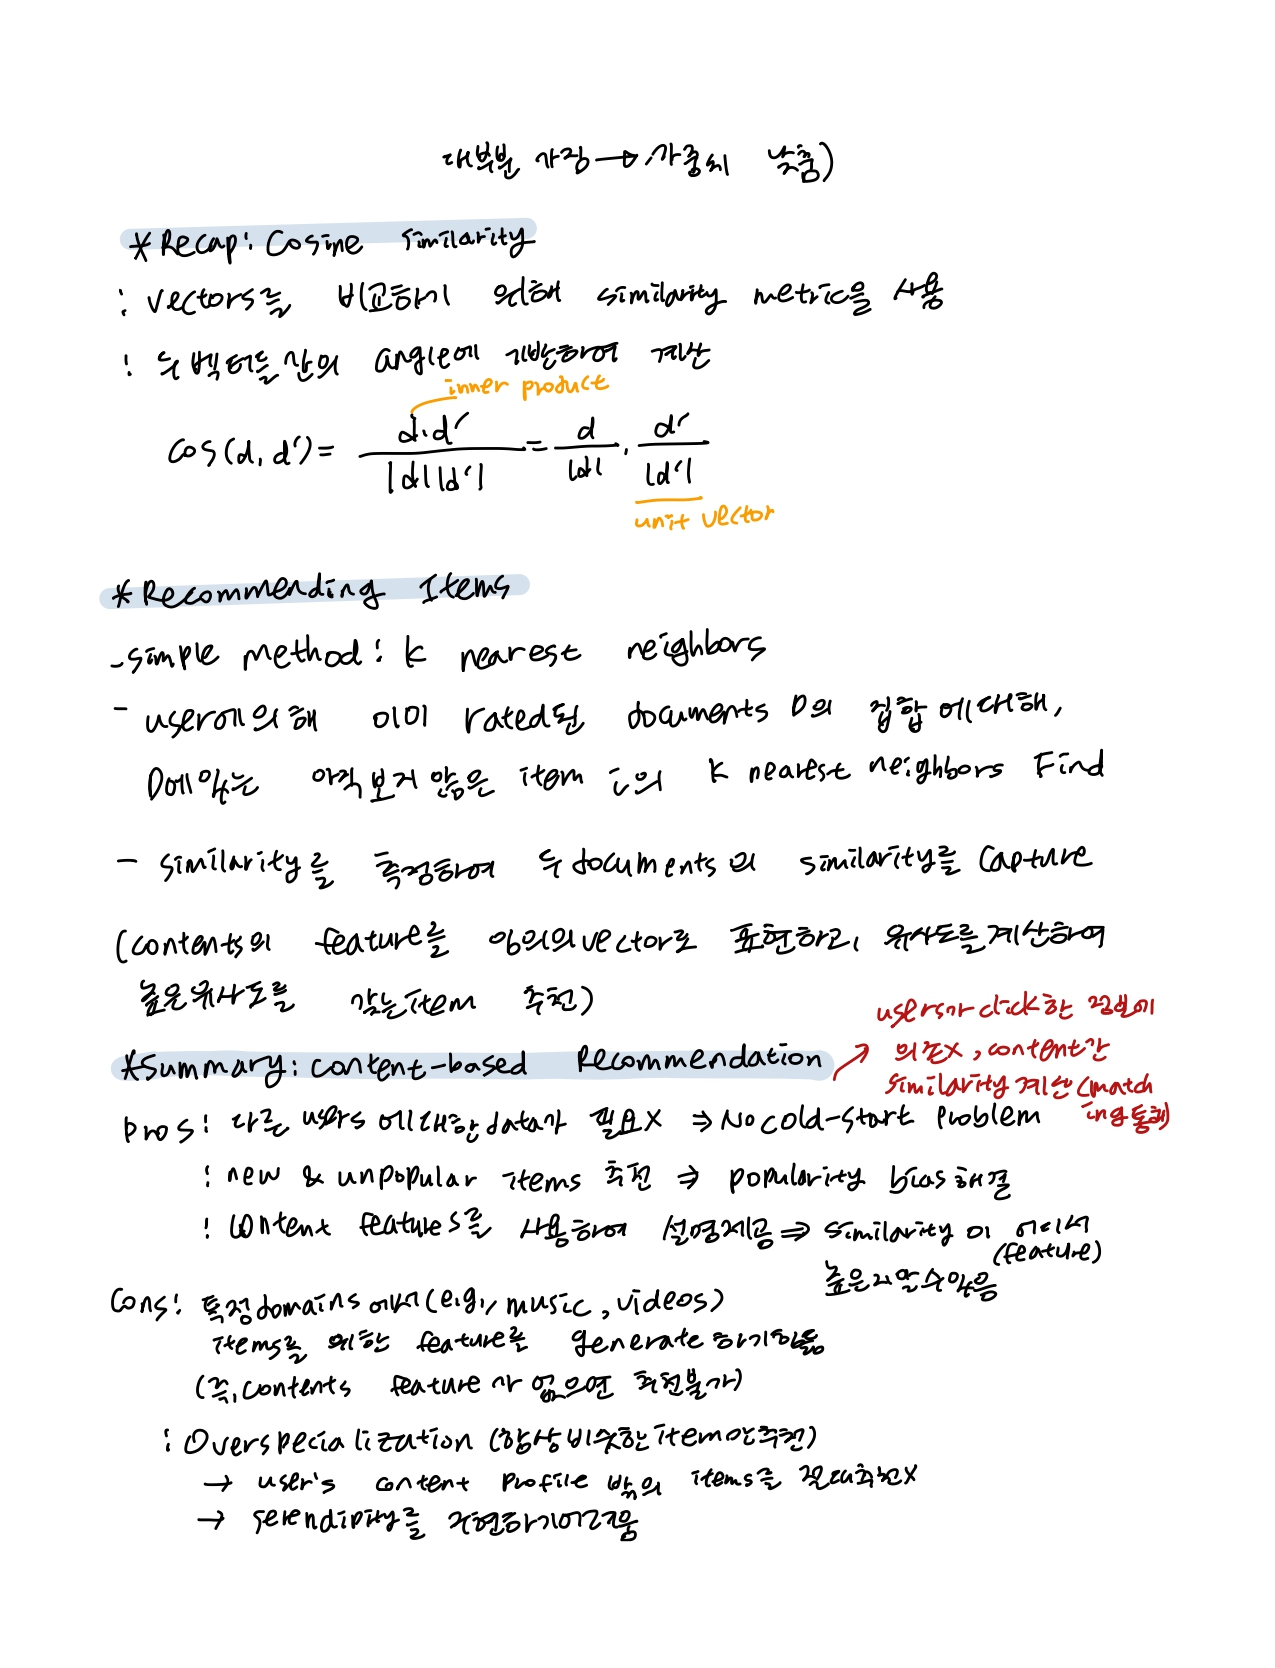 대부분 가짐 → 가중치 낮춤)
*Recap: Cosine similarity
: vectors를 비교하기 위해 similarity metric을 사용
: 두 벡터들 간의 angle에 기반하여 계산
inner product
cos(d, d') = d·d' / |d||d'| = d / |d| · d' / |d'|
unit vector
*Recommending Items
- simple method: K nearest neighbors
- user에 의해 이미 rated된 documents D의 집합에 대해,
D에 있는 아직 보지 않은 item i의 K nearest neighbors Find
- similarity를 측정하여 두 documents의 similarity를 capture
(contents의 feature를 임의의 vector로 표현하고, 유사도를 계산하여
높은 유사도를 갖는 item 추천)
*Summary: content-based Recommendation
users가 click한 정보에
의존X, content간
similarity 계산 (match
내용 통해)
pros: 다른 users에 대한 data가 필요X ⇒ No cold-start problem
: new & unpopular items 추천 ⇒ popularity bias 해결
: content features를 사용하여 설명제공 ⇒ similarity이 어디서
(feature)
높은지 알 수 있음
Cons: 특정 domains에서 (e.g., music, videos)
items를 위한 feature를 generate하기 힘듦
(즉, contents feature가 없으면 추천불가)
: Overspecialization (항상 비슷한 item만 추천)
→ user's content profile 밖의 items를 절대추천X
→ serendipity를 구현하기 어려움